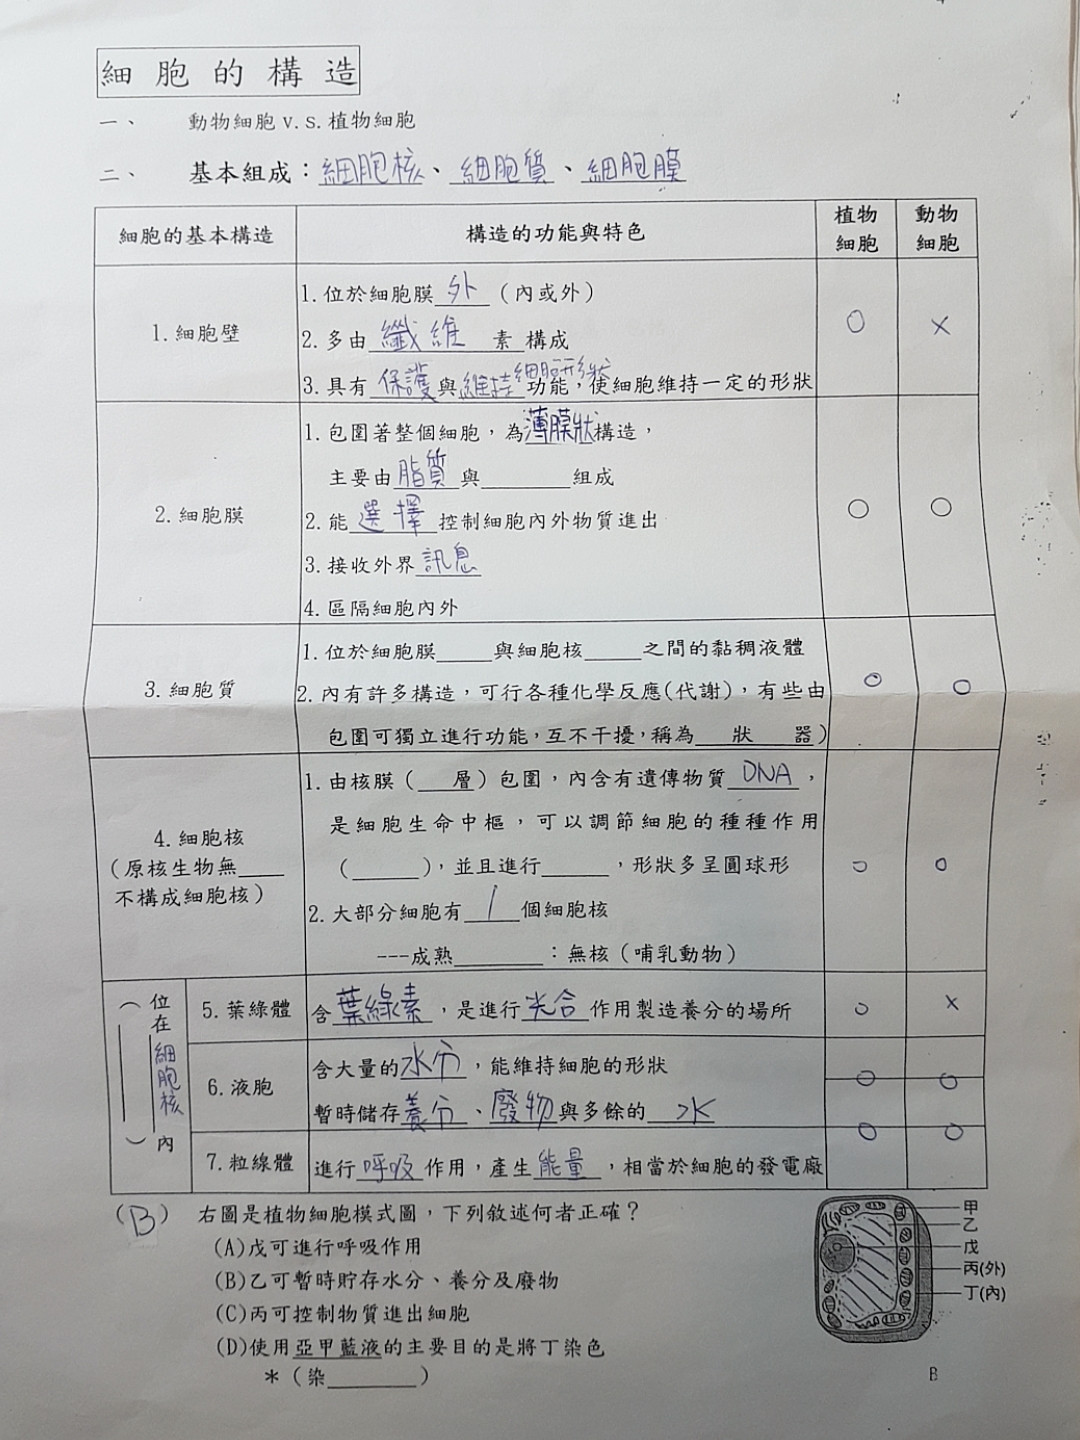 細胞的構造
一、 動物細胞v.s.植物細胞
二、 基本組成：細胞核、細胞質、細胞膜
細胞的基本構造 構造的功能與特色 植物細胞 動物細胞
1.細胞壁
1.位於細胞膜外（內或外）
2.多由纖維素構成
3.具有保護與維持細胞形狀功能，使細胞維持一定的形狀
○ ×
2.細胞膜
1.包圍著整個細胞，為薄膜狀構造，
主要由脂質與____組成
2.能選擇控制細胞內外物質進出
3.接收外界訊息
4.區隔細胞內外
○ ○
3.細胞質
1.位於細胞膜____與細胞核____之間的黏稠液體
2.內有許多構造，可行各種化學反應(代謝)，有些由
包圍可獨立進行功能，互不干擾，稱為__狀__器)
○ ○
4.細胞核
（原核生物無____
不構成細胞核）
1.由核膜（__層）包圍，內含有遺傳物質DNA，
是細胞生命中樞，可以調節細胞的種種作用
（____），並且進行____，形狀多呈圓球形
2.大部分細胞有1個細胞核
---成熟____：無核（哺乳動物）
○ ○
位在細胞核內
（____）
5.葉綠體 含葉綠素，是進行光合作用製造養分的場所 ○ ×
6.液胞
含大量的水分，能維持細胞的形狀
暫時儲存養分、廢物與多餘的水
○ ○
7.粒線體 進行呼吸作用，產生能量，相當於細胞的發電廠 ○ ○
（B） 右圖是植物細胞模式圖，下列敘述何者正確？
(A)戊可進行呼吸作用
(B)乙可暫時貯存水分、養分及廢物
(C)丙可控制物質進出細胞
(D)使用亞甲藍液的主要目的是將丁染色
＊（染____）
甲
乙
戊
丙(外)
丁(內)
B